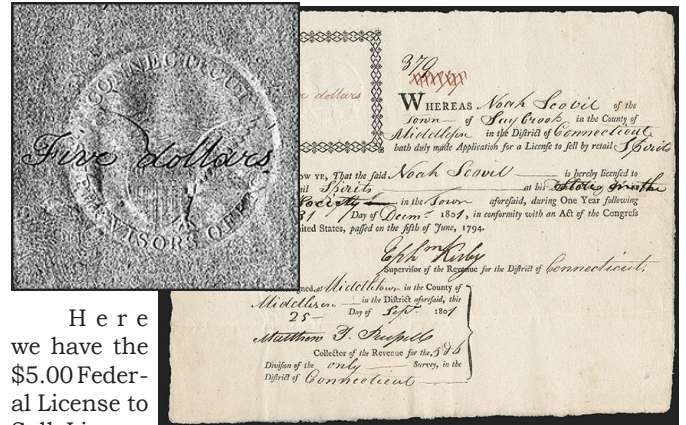 CONNECTICUT
Five dollars
SUPERVISOR'S OFFICE
dollars
379
WHEREAS Noah Scovil of the
Town of Say Brook in the County of
Middlesex in the District of Connecticut
hath duly made Application for a License to sell by retail Spirits
OW YE, That the said Noah Scovil is hereby licensed to
il Spirits at his Store in the
Society in the Town aforesaid, during One Year following
31 Day of Decmr 1801, in conformity with an Act of the Congress
nited States, passed on the fifth of June, 1794.
Ephm Kirby
Supervisor of the Revenue for the District of Connecticut.
igned, at Middletown in the County of
Middlesex in the District aforesaid, this
25 Day of Sept 1801
Matthew T. Russell
Collector of the Revenue for the
Division of the only Survey, in the
District of Connecticut
Here
we have the
$5.00 Feder-
al License to